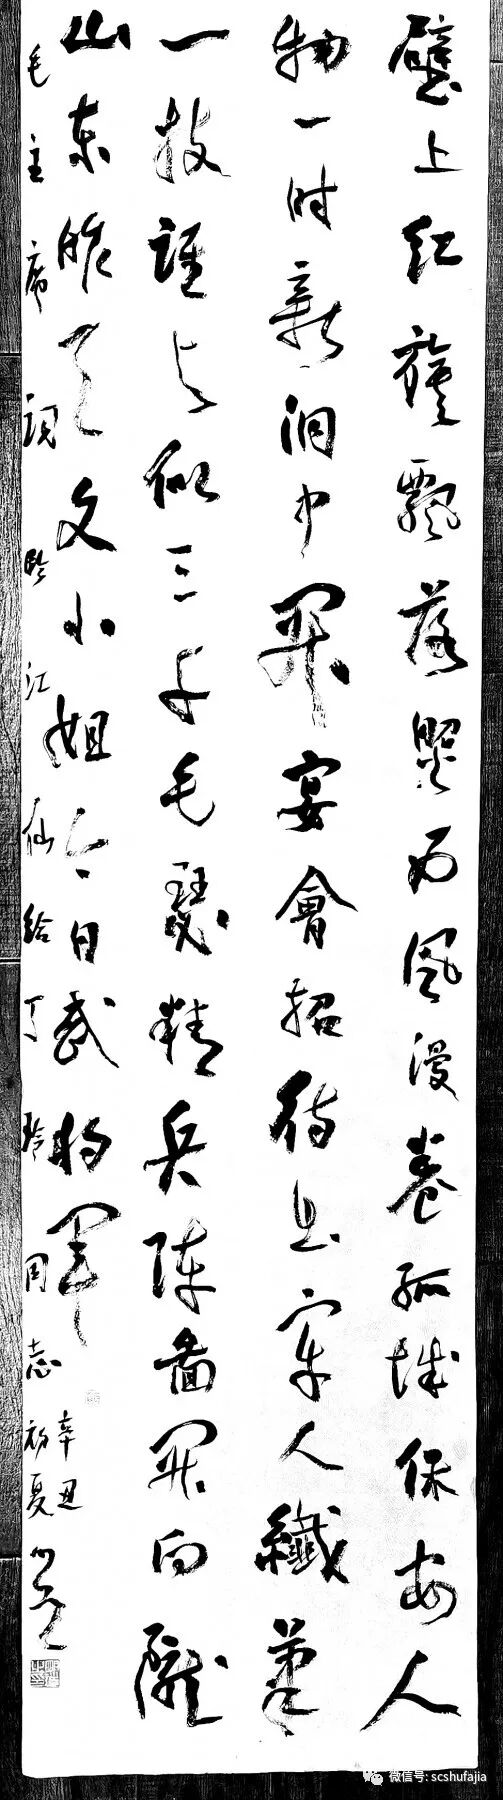 壁上红旗飘落照西风漫卷孤城保安人
物一时新洞中開宴會招待出牢人纖筆
一枝谁与似三千毛瑟精兵阵啚開向隴
山东昨天文小姐今日武将军
毛主席词临江仙给丁玲同志
辛丑
初夏
微信号: scshufajia